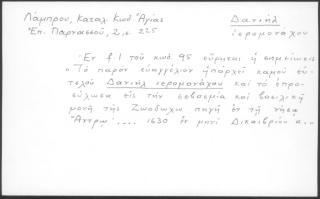 Λάμπρου, Καταλ. Κωδ. Ἁγίας
Δανιήλ
Ἐπ. Παρνασσοῦ, 2, σ. 225
ἱερομονάχου
Ἐν f. 1 τοῦ κωδ. 95 εὕρηται ἡ σημείωσις
"Τὸ παρὸν εὐαγγέλιον ὑπάρχει καμοῦ εὐ-
τελοῦ Δανιὴλ ἱερομονάχου καὶ τὸ ἐπρο-
σύλωσα εἰς τὴν σεβασμία καὶ βασιλικὴ
μονὴ τῆς Ζωοδώχου πηγῆ ἐν τῇ νήσῳ
Ἄντρῳ .... 1630 ἐν μηνὶ Δικαιβρίου